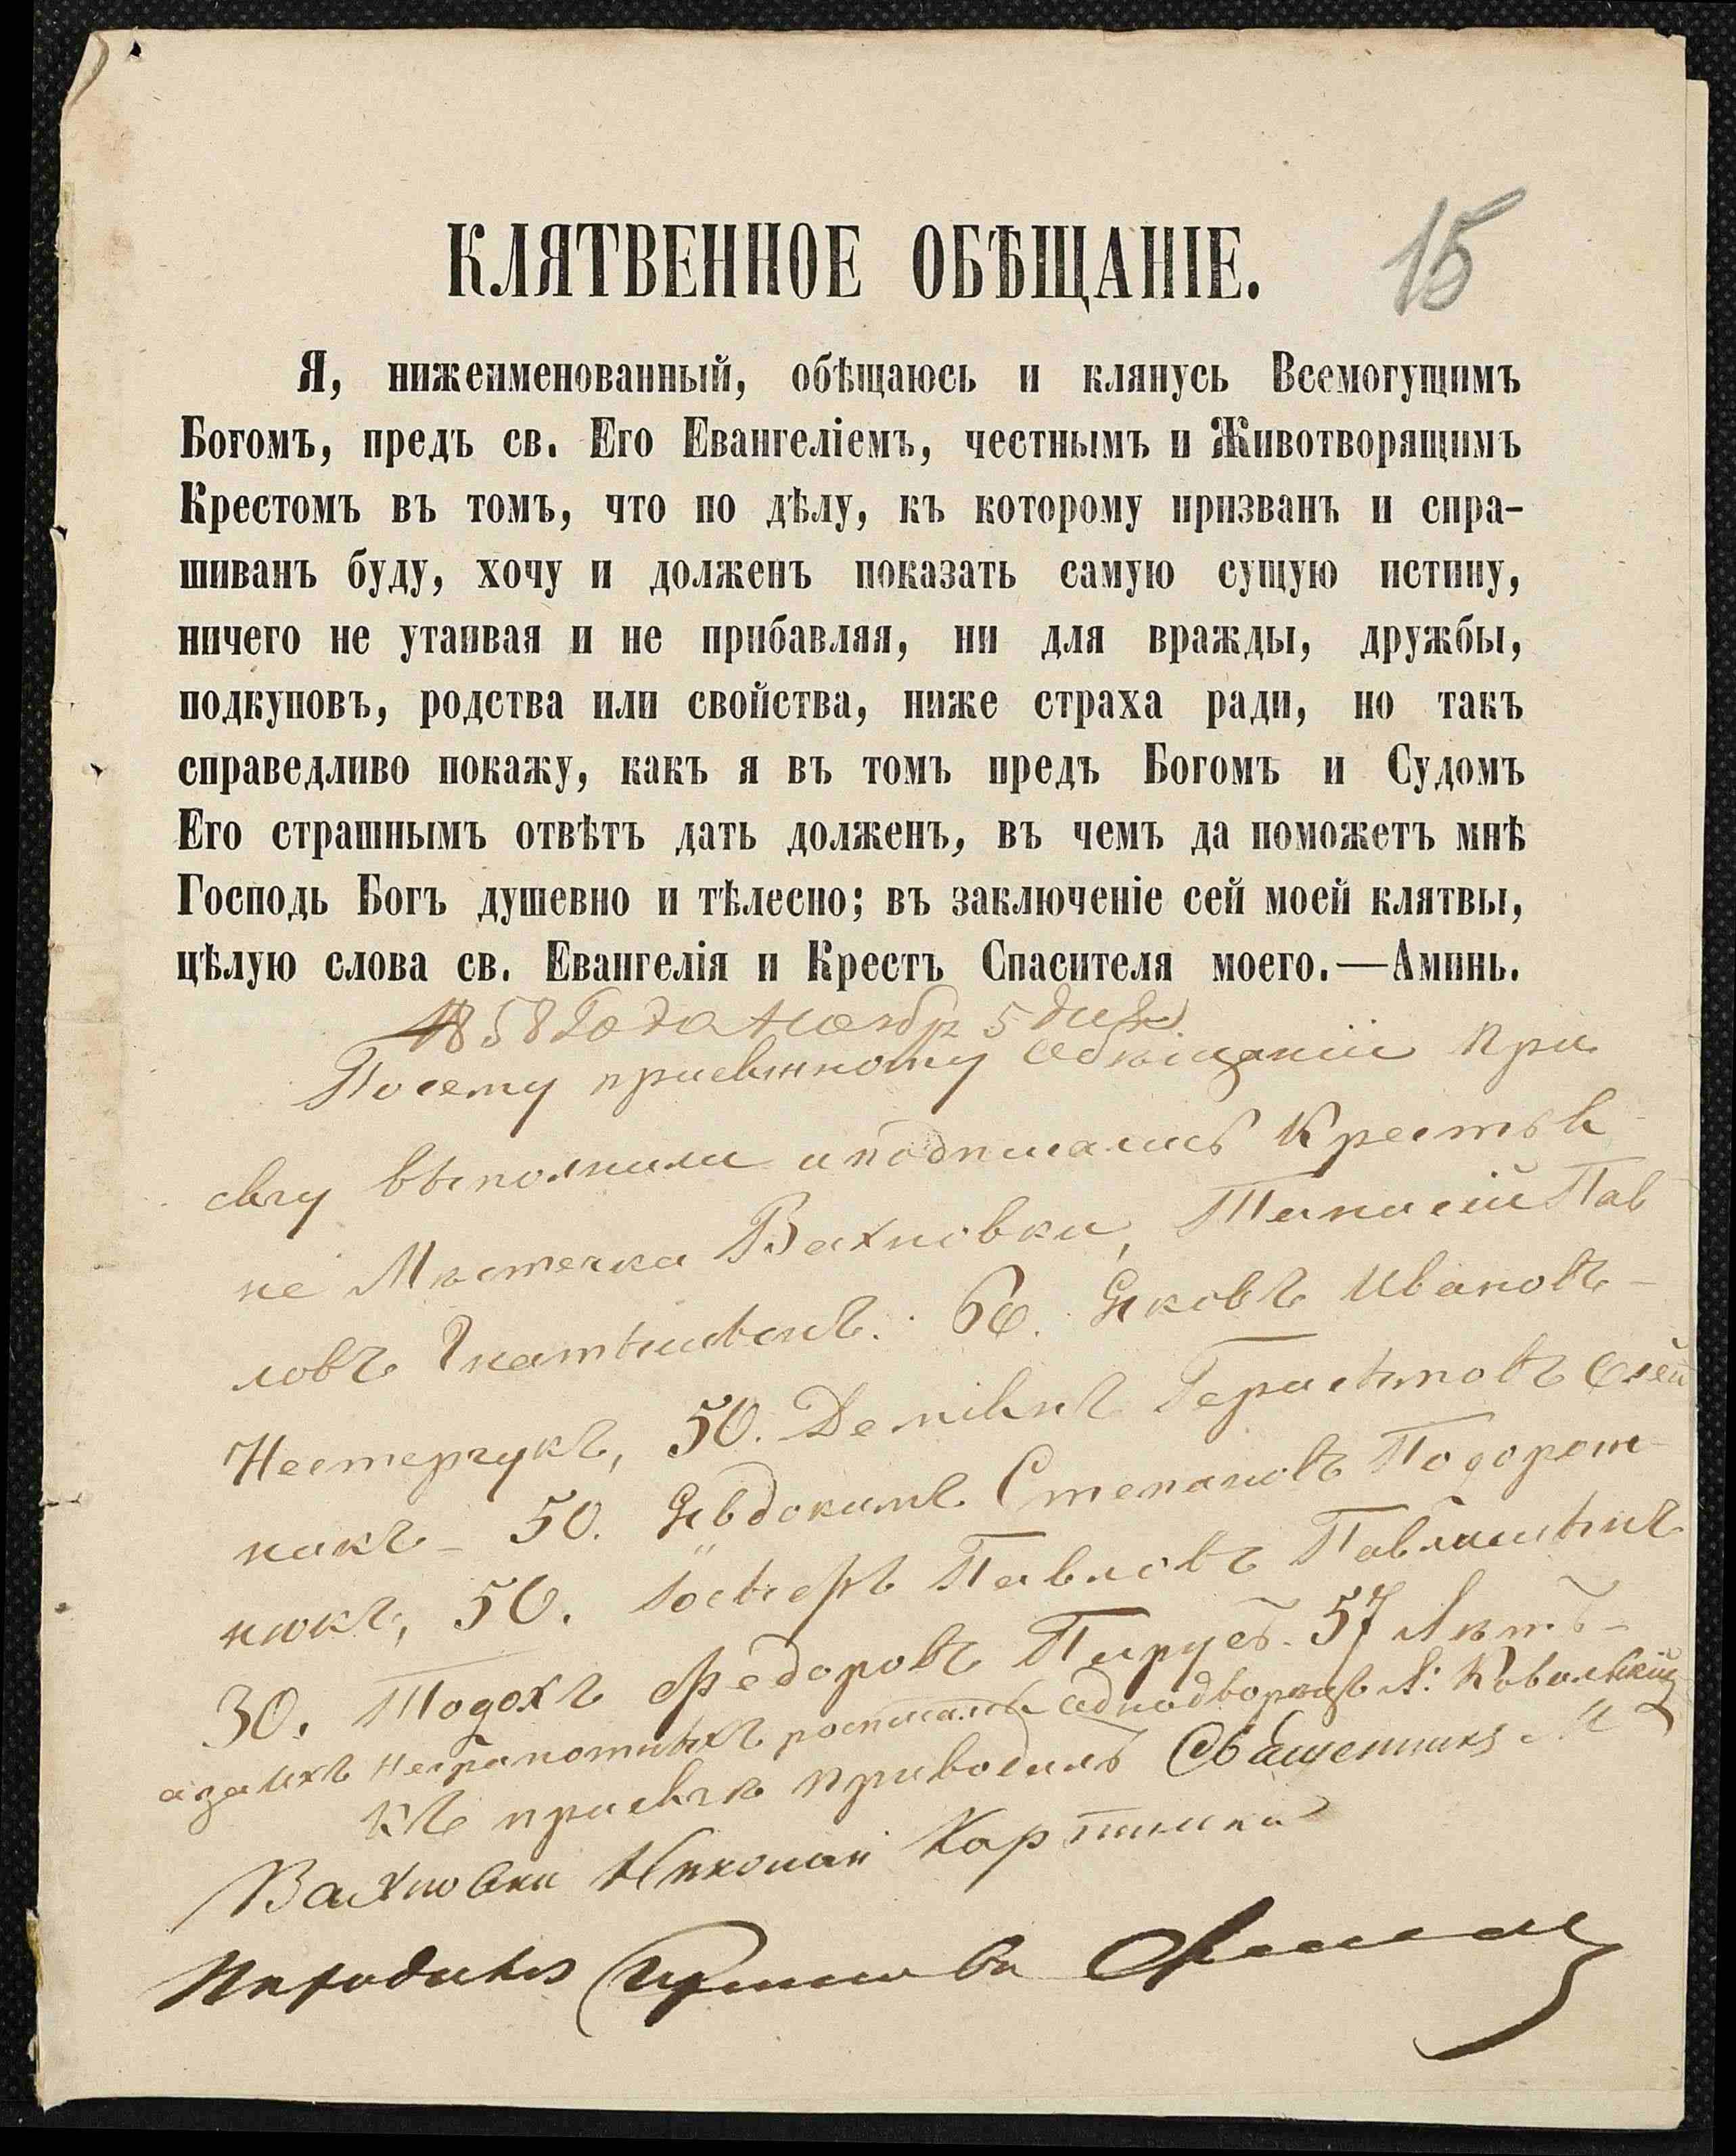 15
КЛЯТВЕННОЕ ОБѢЩАНІЕ.
Я, нижеименованный, обѣщаюсь и клянусь Всемогущимъ
Богомъ, предъ св. Его Евангеліемъ, честнымъ и Животворящимъ
Крестомъ въ томъ, что по дѣлу, къ которому призванъ и спра-
шиванъ буду, хочу и долженъ показать самую сущую истину,
ничего не утаивая и не прибавляя, ни для вражды, дружбы,
подкуповъ, родства или свойства, ниже страха ради, но такъ
справедливо покажу, какъ я въ томъ предъ Богомъ и Судомъ
Его страшнымъ отвѣтъ дать долженъ, въ чемъ да поможетъ мнѣ
Господь Богъ душевно и тѣлесно; въ заключеніе сей моей клятвы,
цѣлую слова св. Евангелія и Крестъ Спасителя моего.—Аминь.
1858 Года Ноябр 5 дня
Посему присяжному Обѣщаніи При
сягу выполнили и подписались Крестья
не Мѣстечка Вахновки, Танасій Пав
ловъ 60. Яковъ Ивановъ
Нестерчукъ, 50. Герасимовъ Олей
никъ 50. Явдокимъ Степановъ Подорож
нюкъ, 50. Іосифъ Павловъ
30. Тодохъ Федоровъ Пирусъ. 57 Лѣтъ
а за ихъ Неграмотныхъ росписался однодворецъ Л: Ковальскій
Къ присягѣ приводилъ Священникъ М
Вахновки Николай